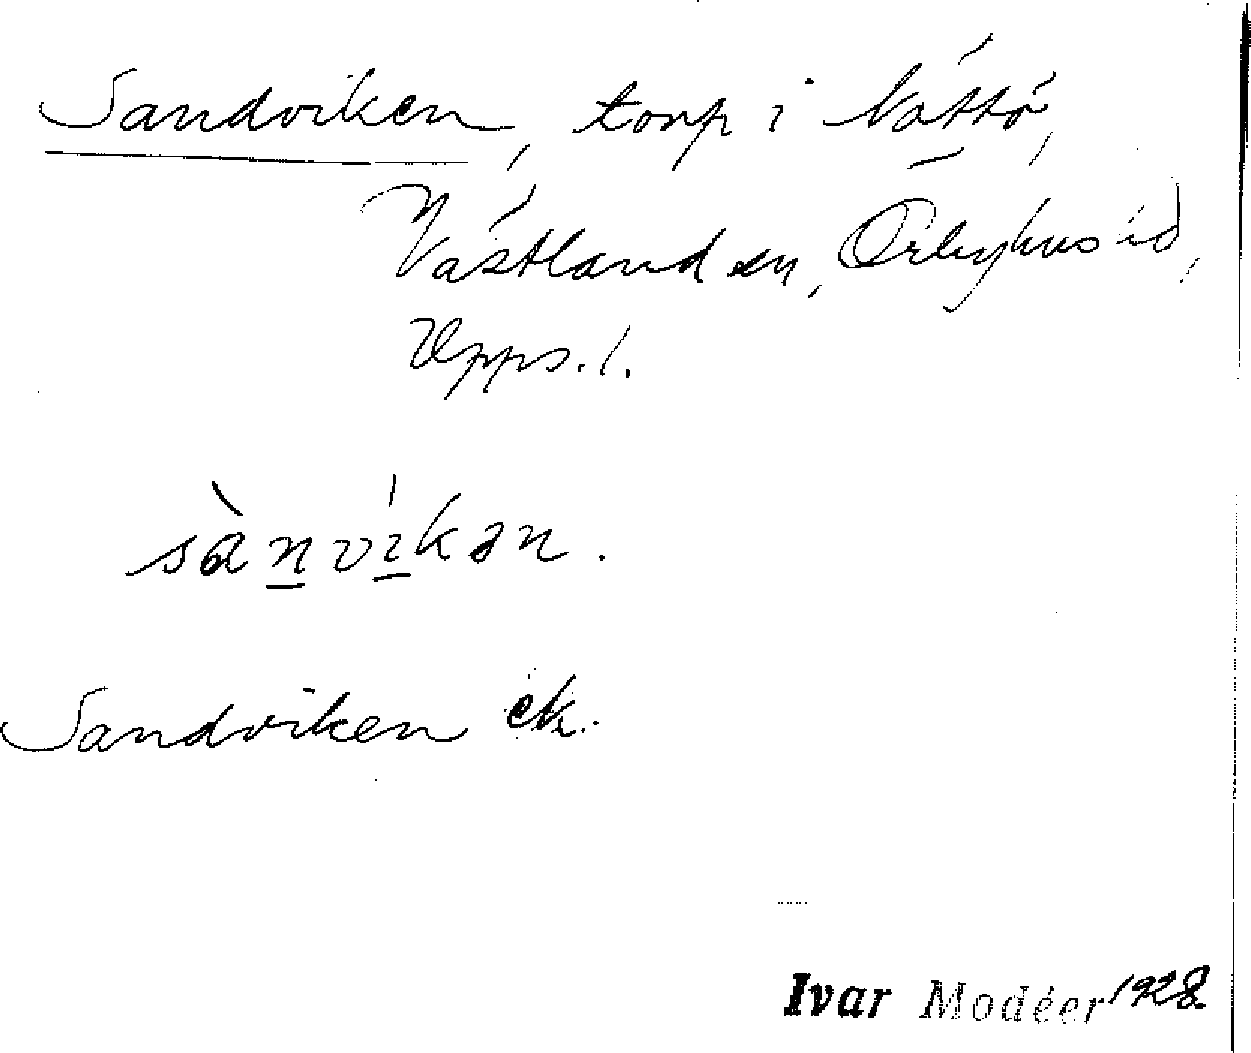 Sandviken, torp i Västlö,
Västland sn, Örbyhus hd,
Upps. l.
sànvíkən.
Sandviken ek.
Ivar Modéer 1928